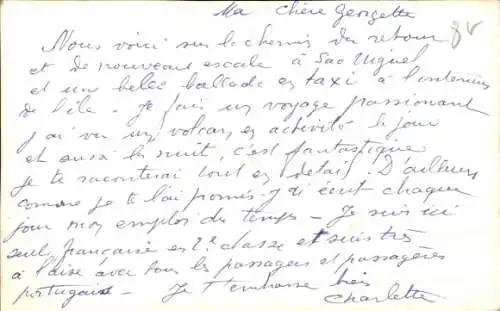 Ma chère Georgette
Nous voici sur le chemin du retour
et de nouveau escale à Sao Miguel
et une belle ballade en taxi à l'intérieur
de l'île - Je fais un voyage passionnant
j'ai vu un volcan en activité le jour
et aussi la nuit, c'est fantastique
je te raconterai tout en détail. D'ailleurs
comme je te l'ai promis j'ai écrit chaque
jour mon emploi du temps - Je suis ici
seule française en 2e classe et suis très
à l'aise avec tous les passagers et passagères
portugais - Je t'embrasse bien
Charlette